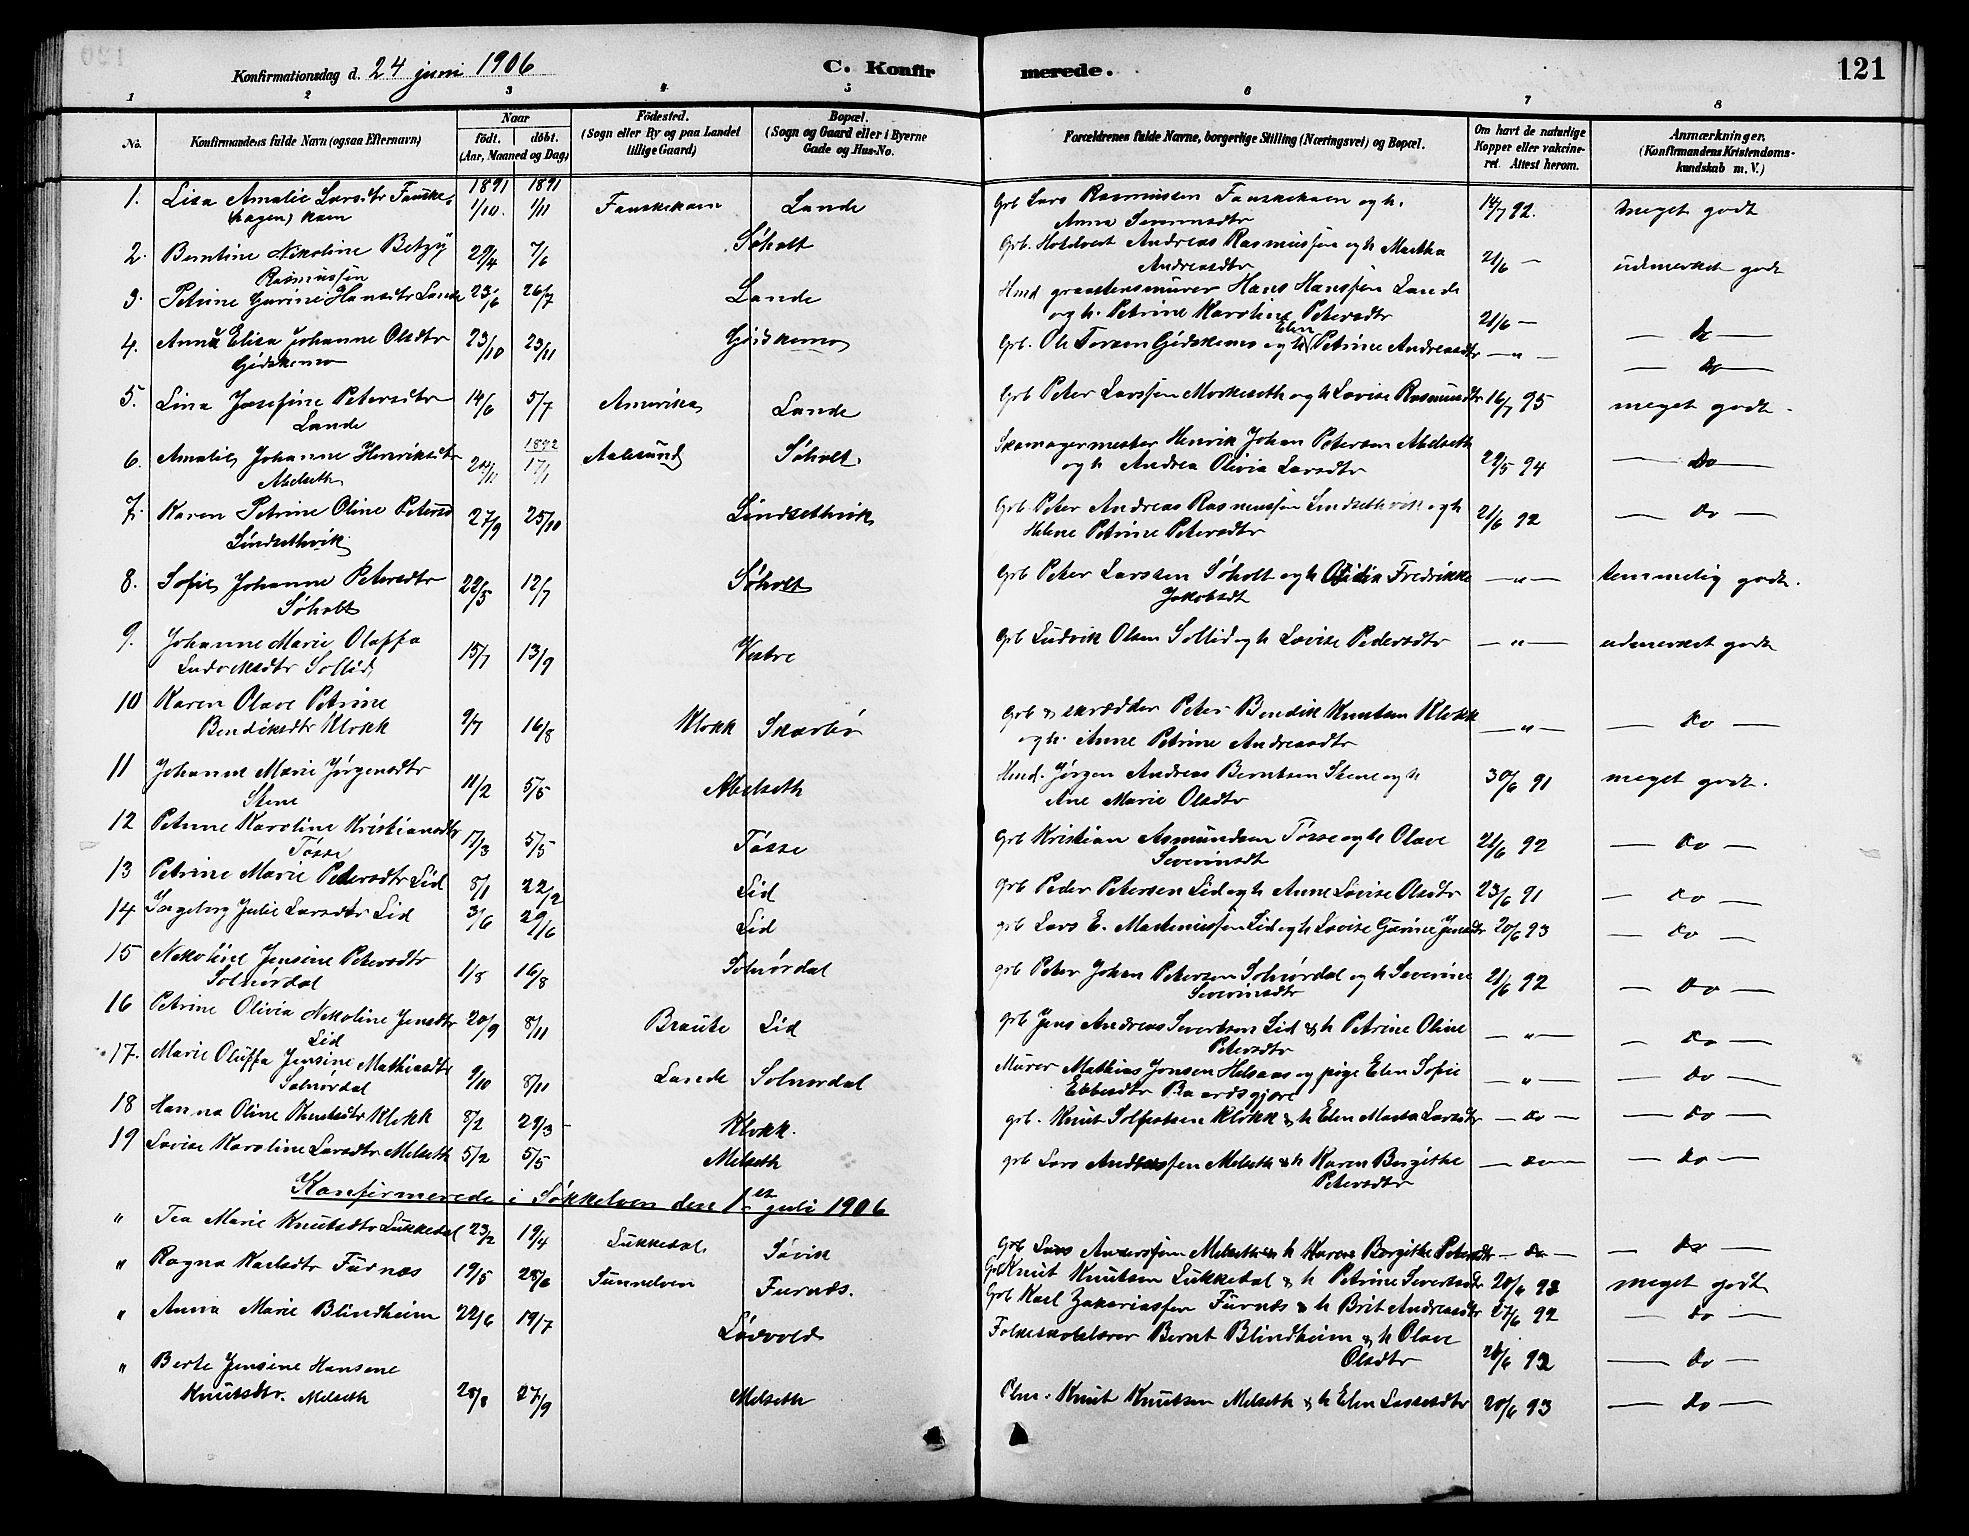 Konfirmationsdag d. 24 juni 1906 C. Konfir merede. 121
1 2 3 4 5 6 7 8
No. Konfirmandens fulde Navn (ogsaa Efternavn) Naar födt. döbt. (Aar, Maaned og Dag) Födested. (Sogn eller By og paa Landet tillige Gaard) Bopæl. (Sogn og Gaard eller i Byerne Gade og Hus-No. Forældrenes fulde Navne, borgerlige Stilling (Næringsvei) og Bopæl. Om havt de naturlige Kopper eller vakcineret. Attest herom. Anmærkninger. (Konfirmandens Kristendomskundskab m. V.)
1. Lisa Amalie Larsdtr Fauske 1891 1/10. 1891 1/11 Fauskekaen Lande Grb Lars Rasmussen Fauskekaen og h. 14/7 92. meget godt
(hagen) kaen Anna
2. Berntine Nikoline Betzy 29/4 7/6 Søholt Grb. Hotelvert Andreas Rasmussen og h Martha 21/6 — udmerket godt
Rasmussen Andreasdtr
3. Petrine Gurine Hansdtr Lande 23/6 26/7 Lande Hmd graastensmurer Hans Hanssen Lande
og h. Petrine Karoline Petersdtr 21/6 — — do —
4. Anna Elisa Johanne Olsdtr 23/10 23/11 Gjidskemo Grb. Ole Gidskemo og h Elen Petrine Andreasdtr — " —
Gidskemo — do —
5. Lina Josefine Petersdtr 14/6 5/7 Amerika Lande Grb Peter Larssen og h Lovise Rasmusdtr 16/7 95 meget godt.
Lande
6. Amalie Johanne Henriksdtr 1892 17/1 Aalesund Søholt Skomagermester Henrik Johan Petersen Abelseth 29/5 94 — do —
Abelseth og h Andrea Olivia Larsdtr
7. Karen Petrine Oline Petersd 27/9 25/10 Lindsethvik Grb Peter Andreas Rasmussen Lindsethvik og h 21/6 92 — do —
Lindsethvik Helene Petrine Petersdtr
8. Sofie Johanne Petersdtr 22/5 12/7 Søholt Grb Peter Larssen Søholt og h Fredrikke — " — temmelig godt.
Søholt Jakobsdt
9. Johanne Marie Oluffa 15/7 13/9 Vestre Grb Ludvik Olsen Sollid og h Lovise Pedersdtr — " — udmerket godt
Ludviksdtr Sollid
10 Karen Olave Petrine 9/7 16/8 Klokk Skarbø Grb & skrædder Peter Bendik Knutsen Klokk — " — — do —
Bendiksdtr Klokk og h. Anne Petrine Andreasdtr
11 Johanne Marie Jørgensdtr 11/2 5/5 Abelseth Hmd. Jørgen Andreas Berntsen Stene og h 30/6 91 meget godt.
Stene Ane Marie Olsdtr
12 Petrine Karoline Kristiansdtr 17/3 5/5 Tøsse Grb Kristian Asmundsen Tøsse og h Olave 21/6 92 — do —
Tøsse Severinsdt
13 Petrine Marie Petersdtr Lid 8/1 22/2 Lid grb Peder Petersen Lid og h Anne Lovise Olsdtr 23/6 91 — do —
14 Ingeborg Julie Larsdtr Lid 3/6 29/6 Lid grb Lars E. Martinussen Lid og h Lovise Gurine Jensdtr 20/6 93 — do —
15 Nikoline Jensine Petersdtr 1/8 16/8 Solnørdal grb Peter Johan Petersen Solnørdal og h Severine 21/6 92 — do —
Solnørdal Severinsdtr
16 Petrine Olivia Nikoline Jensdtr 20/9 8/11 Braute Lid grb Jens Andreas Sivertsen Lid & h Petrine Oline — " — — do —
Lid Petersdtr
17. Marie Oluffa Jensine Mathiasdtr 9/10 8/11 Lande Solnørdal Murer Mathias Jonsen Helsaas og pige Elen Sofie — " — — do —
Solnørdal Ebbesdtr
18 Hanna Oline Knutsdtr Klokk 8/2 29/3 Klokk. grb. Knut Klokk & h Elen Marta Larsdtr — do — — do —
19 Lovise Karoline Larsdtr Melseth 5/2 5/5 Melseth grb Lars Andreassen Melseth & h Karen Bergithe — do — — do —
Petersdtr
Konfirmerede i Søkkelven den 1ste juli 1906
" Tea Marie Knutsdtr Lukkedal 23/2 19/4 Lukkedal Søvik Grb Lars Anderssen Melseth & h Karen Bergithe Petersdtr — do — — do —
" Ragna Karlsdtr Furnæs 19/5 28/6 Sunnelven Furnæs. Grb Knut Knutsen Lukkedal & h Petrine Sivertsdtr 20/6 93 meget godt
" Anna Marie Blindheim 22/6 19/7 Lødvold Grb Karl Zakariassen Furnæs & h Brit Andreasdtr 27/6 92 — do —
Folkeskolelærer Bernt Blindheim & h Olave
Olsdtr 21/6 92 — do —
" Berte Jensine Hansene
Knutsdtr. Melseth 28/8 27/9 Melseth Knut Knutsen Melseth & h Elen Lassesdtr 20/6 93 — do —